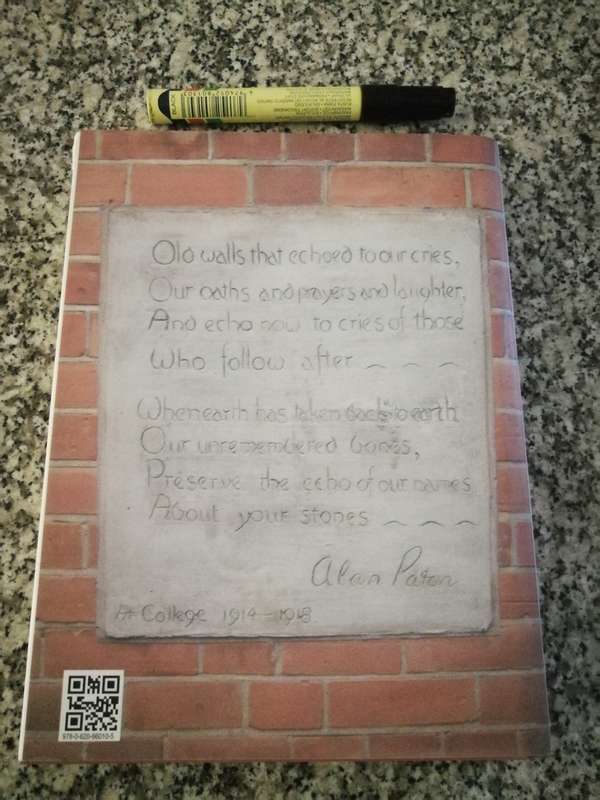 Old walls that echoed to our cries,
Our oaths and prayers and laughter,
And echo now to cries of those
Who follow after ~ ~ ~
When earth has taken back to earth
Our unremembered bones,
Preserve the echo of our names
About your stones ~ ~ ~
Alan Paton
At College 1914-1918
978-0-620-66010-5